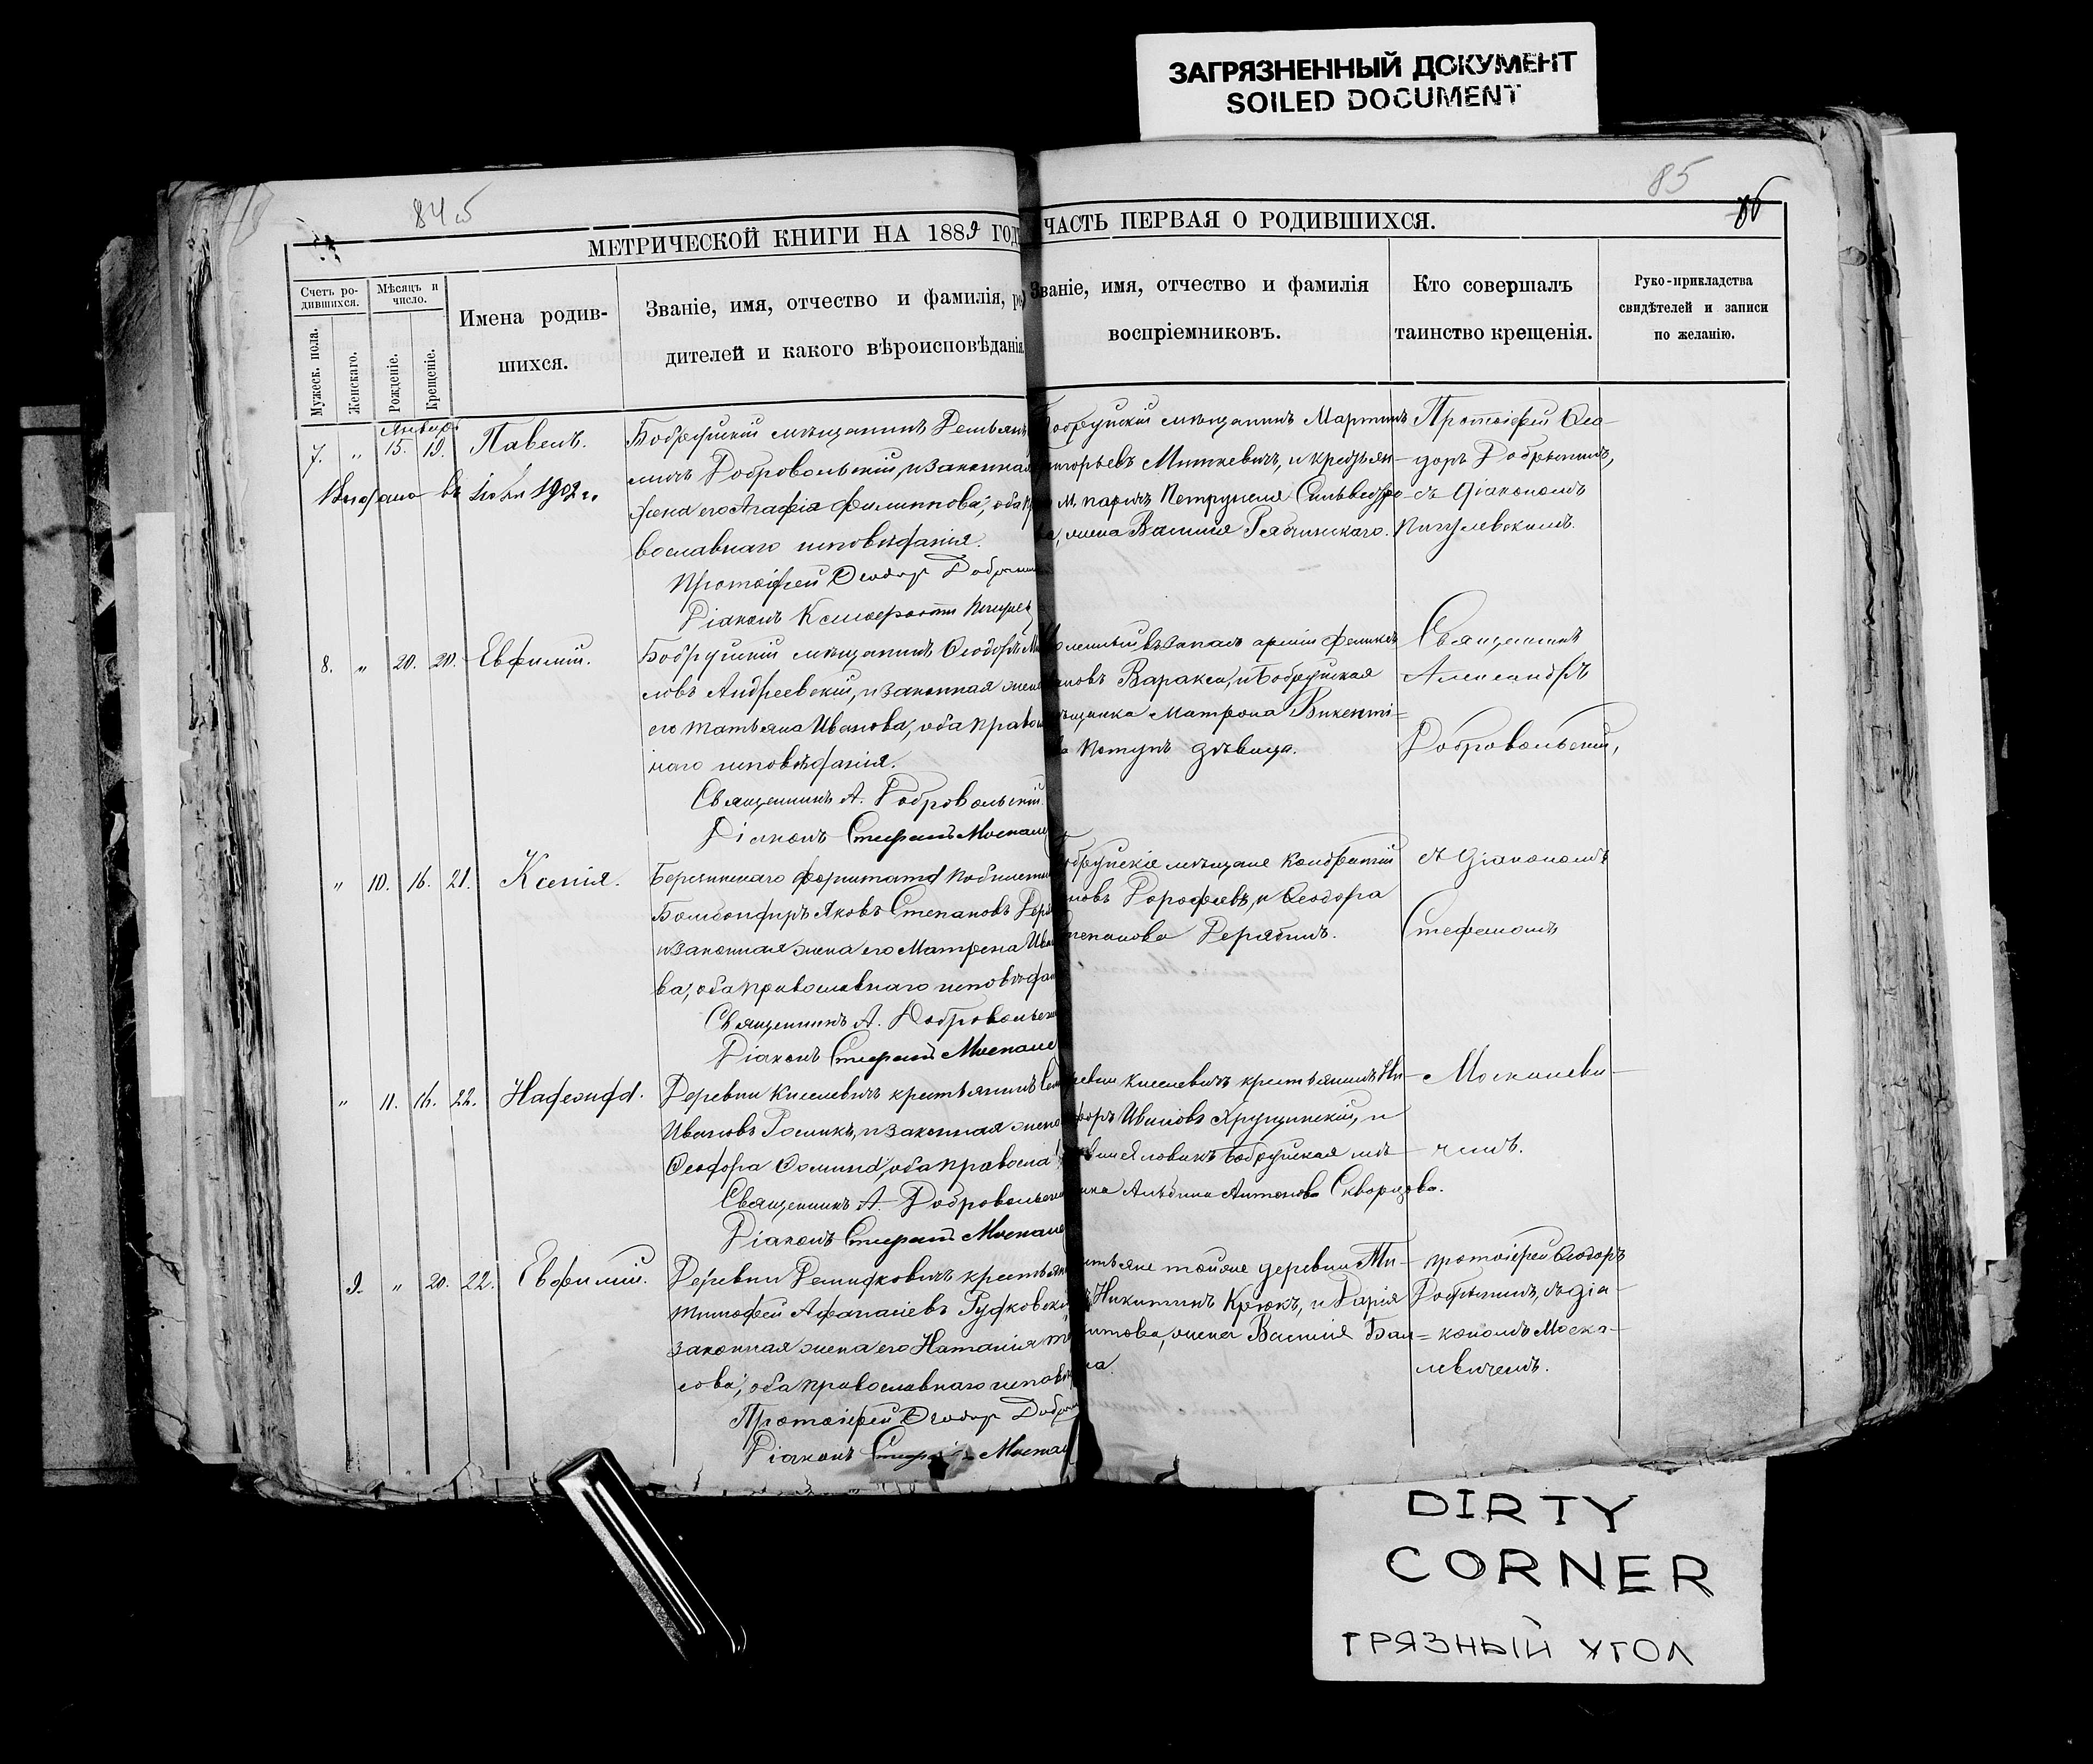 ЗАГРЯЗНЕННЫЙ ДОКУМЕНТ
SOILED DOCUMENT
84 об
85
86
МЕТРИЧЕСКОЙ КНИГИ НА 1889 ГОД
ЧАСТЬ ПЕРВАЯ О РОДИВШИХСЯ.
Счетъ ро-
дившихся.
Мужеск. пола.
Женскаго.
Мѣсяцъ и
число.
Рожденіе.
Крещеніе.
Имена родив-
шихся.
Званіе, имя, отчество и фамилія, ро
дителей и какого вѣроисповѣданія
Званіе, имя, отчество и фамилія
воспріемниковъ.
Кто совершалъ
таинство крещенія.
Руко-прикладства
свидѣтелей и записи
по желанію.
Январь
7. " 15. 19. Павелъ.
1902 г.
Бобруйскій мѣщанинъ Демьянъ
Добровольскій, и законная
жена его Агафія Филиппова, оба пр
вославнаго исповѣданія.
Протоіерей Ѳеодор
Діаконъ
обруйскій мѣщанинъ Мартинъ
игорьевъ Миткевичъ, и
м. паричъ Петрунеля
жена Василія
Протоіерей Ѳео-
доръ
съ діакономъ
8. " 20. 20. Евфимій.
Бобруйскій мѣщанинъ Ѳеодоръ
ловъ Андреевскій, и законная жена
его Татьяна Иванова, оба право
наго исповѣданія.
Священникъ А. Добровольскій.
Діаконъ Стефанъ
въ запасъ арміи
ановъ Варакса, и Бобруйская
ѣщанка Матрона Викенті-
дѣвица.
Священникъ
Александръ
Добровольскій,
" 10. 16. 21. Ксенія.
Яковъ Степановъ
и законная жена его Матрена
ва, оба православнаго исповѣдан
Священникъ А. Добровольск
Діаконъ Стефанъ
обруйскіе мѣщане Кондратій
новъ Дорофеевъ, и Ѳеодора
тепанова
съ діакономъ
Стефаномъ
" 11. 16. 22.
Деревни Киселевичъ крестьянинъ
Ивановъ и законная жена
Ѳеодора оба правосла
Священникъ А. Добровольск
Діаконъ Стефанъ
ревни Киселевичъ крестьянинъ Ни-
форъ Ивановъ Хрущинскій, и
Бобруйская мѣ-
нка Антонова Скворцова.
Москалеви-
чемъ.
9. " 20. 22. Евфимій.
Деревни крестьян
Тимофей Афанасіевъ
законная жена его Наталія
сова, оба православнаго исповѣ
Протоіерей Ѳеодор
Діаконъ
стьяне тойже деревни Ти-
Никитинъ Крюкъ, и Дарія
итова, жена Василія Бал-
на.
протоіерей Ѳеодоръ
съ діа-
кономъ Моска-
левичемъ.
DIRTY
CORNER
ГРЯЗНЫЙ УГОЛ